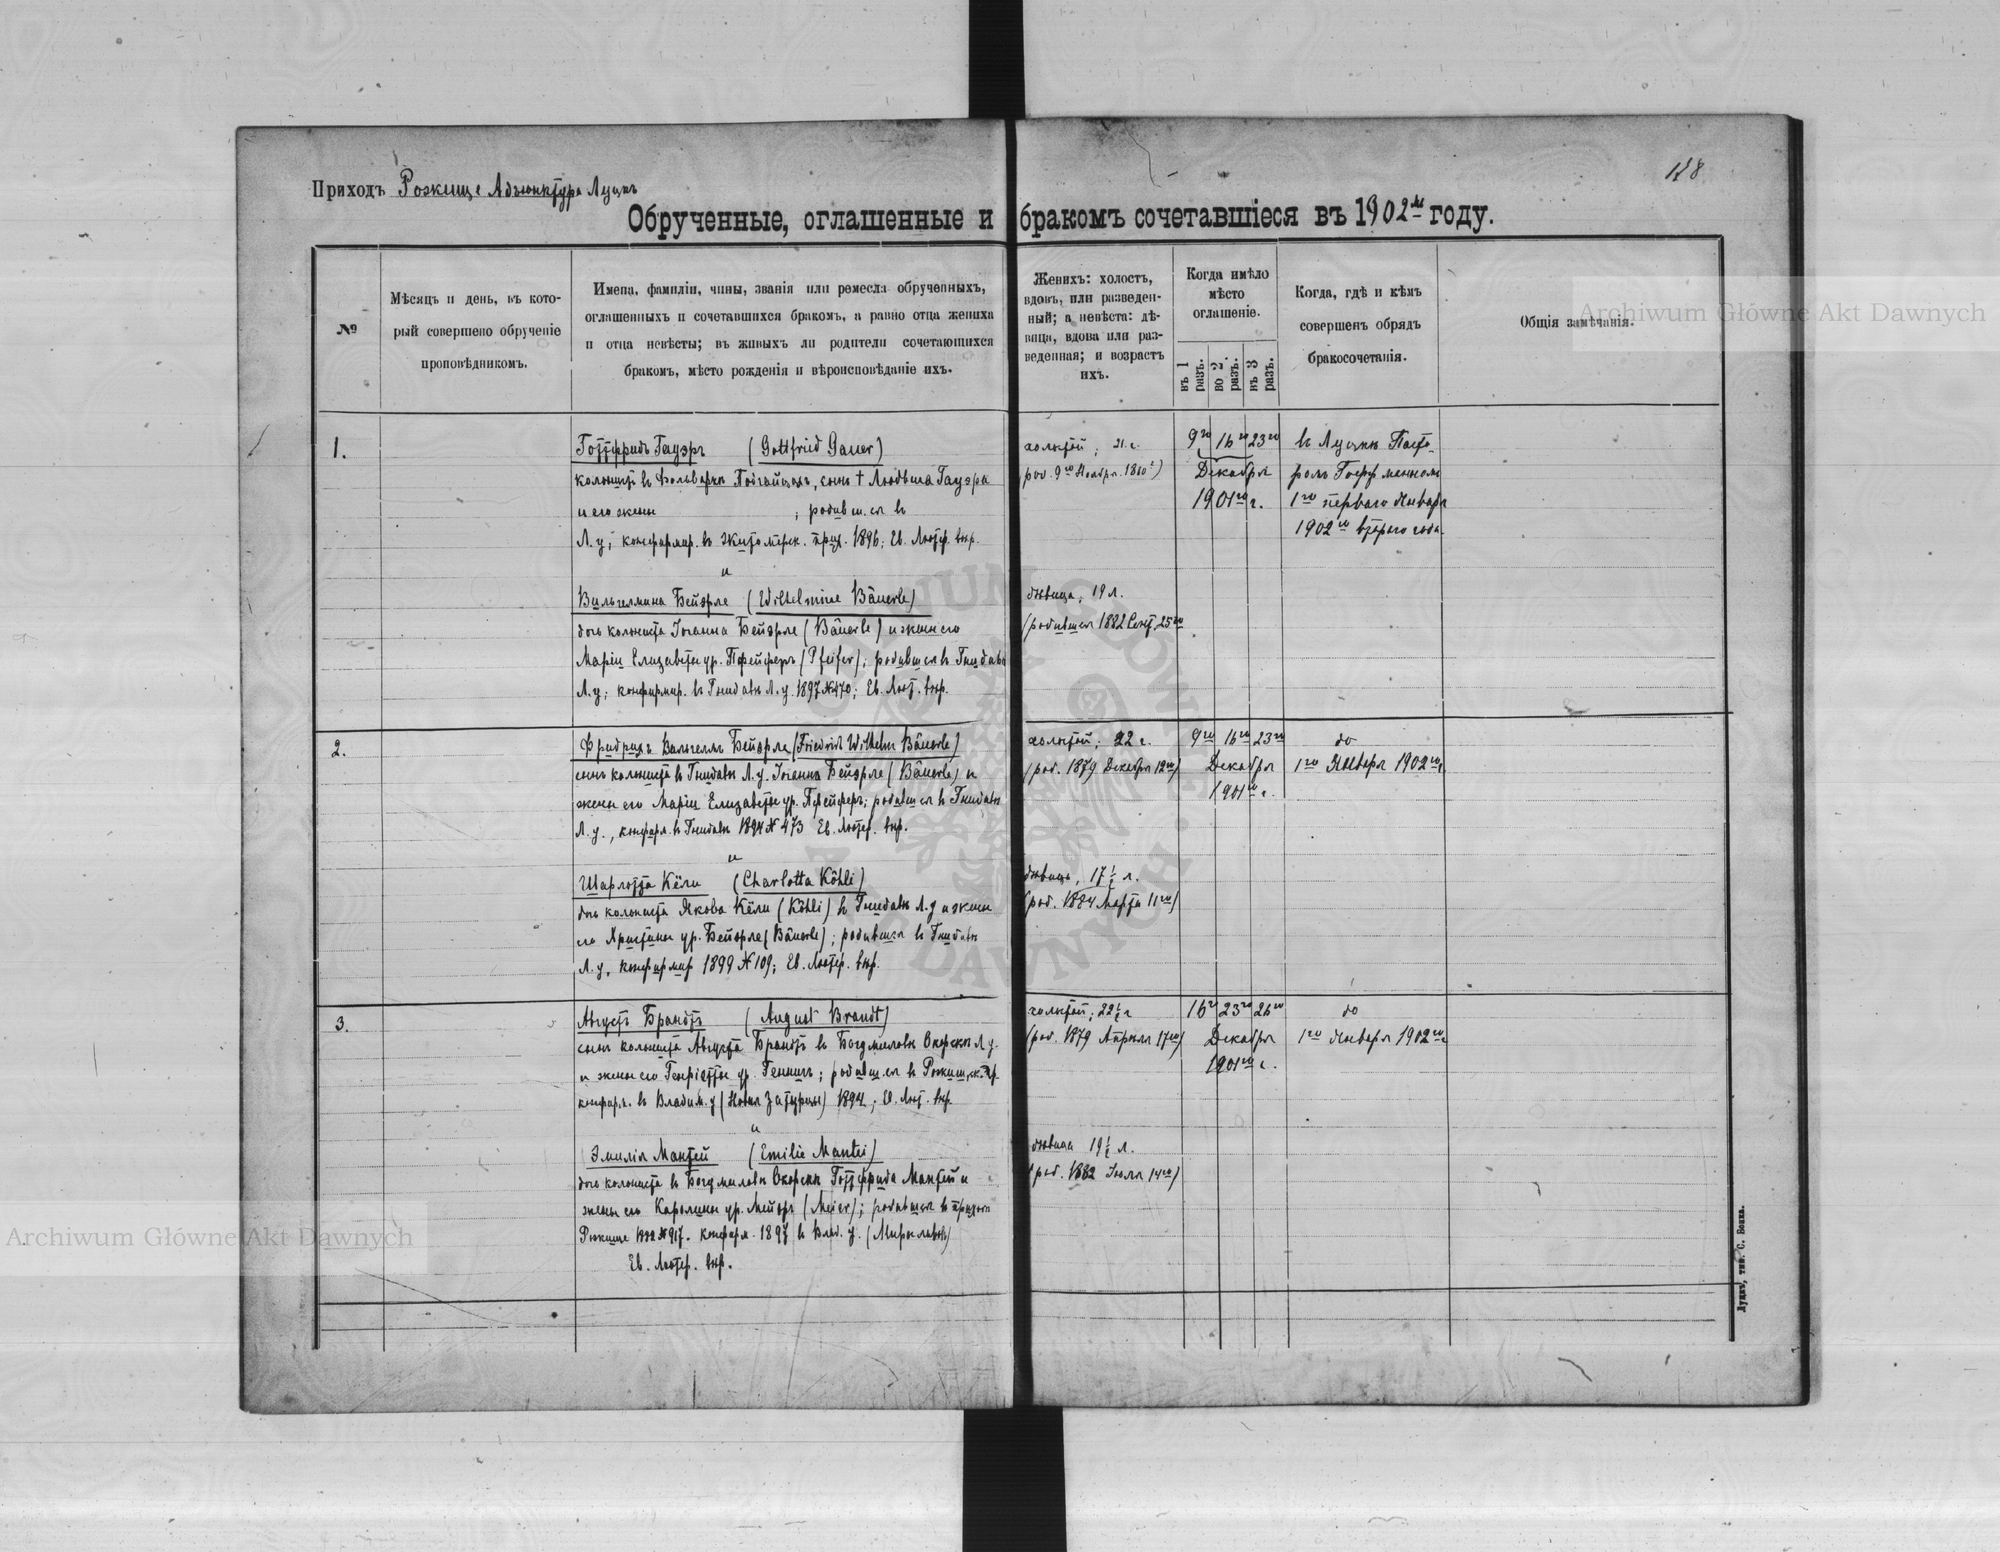 128
Приходъ Рожище Адъюнктура Луцкъ
Обрученные, оглашенные и бракомъ сочетавшіеся въ 1902 м году.
№
Мѣсяцъ и день, въ кото-
рый совершено обрученіе
проповѣдникомъ.
Имена, фамиліи, чины, званія или ремесла обрученныхъ,
оглашенныхъ и сочетавшихся бракомъ, а равно отца жениха
и отца невѣсты; въ живыхъ ли родители сочетающихся
бракомъ, мѣсто рожденія и вѣроисповѣданіе ихъ.
Женихъ: холостъ,
вдовъ, или разведен-
ный; а невѣста: дѣ-
вица, вдова или раз-
веденная; и возрастъ
ихъ.
Когда имѣло
мѣсто
оглашеніе.
въ 1 разъ.
во 2 разъ.
въ 3 разъ.
Когда, гдѣ и кѣмъ
совершенъ обрядъ
бракосочетанія.
Общія замѣчанія.
1.
Готтфридъ Гауэръ (Gottfried Gauer)
колонистъ въ Фольваркъ Подгайцахъ, сынъ † Людвига Гауэра
и его жены ; родивш. ся въ
Л. у; конфирмир. въ Житомірск. прих. 1896; Ев. Лютер. вѣр.
и
Вильгелмина Бейэрле (Wilhelmine Bäuerle)
дочь колониста Іоганна Бейэрле (Bäuerle) и жены его
Маріи Елизаветы ур. Пфейферъ (Pfeifer); родивш ся въ Гнидавѣ
Л. у; конфирмир. въ Гнидавѣ Л. у. 1897 № 470; Ев. Лют. вѣр.
холостой; 21 г.
(род. 9го Ноября 1880 г)
дѣвица, 19 л.
(родившся 1882 Сент. 25го
9го 16го 23го
Декабря
1901го г.
въ Луцкѣ Пасто-
ромъ Гофф манномъ
1го перваго Января
1902го второго года.
2.
Фридрихъ Вильгелмъ Бейэрле (Friedrich Wilhelm Bäuerle)
сынъ колониста въ Гнидавѣ Л. у. Іоганна Бейэрле (Bäuerle) и
жены его Маріи Елизаветы ур. Пфейферъ; родивш ся въ Гнидавѣ
Л. у., конфирм. въ Гнидавѣ 1894 № 473 Ев. Лютер. вѣр.
и
Шарлотта Кёли (Charlotta Köhli)
дочь колониста Якова Кёли (Köhli) въ Гнидавѣ Л. у и жены
его Христины ур. Бейэрле (Bäuerle); родившся въ Гнидавѣ
Л. у, конфирмир 1899 № 109; Ев. Лютер. вѣр.
холостой; 22 г.
(род. 1879 Декабря 12го)
дѣвица, 17 ½ л.
(род. 1884 Марта 11го)
9го 16го 23го
Декабря
1901го г.
do
1го Января 1902го г.
3.
Августъ Брандтъ (August Brandt)
сынъ колониста Августа Брандтъ въ Богумиловѣ Окорскъ Л у.
и жены его Генріетты ур. Геннигъ; родивш ся въ Рожищ. ск. пр.
конфирм. въ Владим. у (Новыя Затурцы) 1894; Ев. Лют. вѣр.
и
Эмилія Мантей (Emilie Mantei)
дочь колониста въ Богумиловѣ Окорскъ Готтфрида Мантей и
жены его Каролины ур. Мейэръ (Meier); родившся въ приходѣ
Рожище 1882 № 917. конфирм. 1897 въ Влад. у. (Мирославовъ)
Ев. Лютер. вѣр.
холостой; 22 ½ г
(род. 1879 Апрѣля 17го)
дѣвица 19 ½ л.
(род. 1882 Іюля 14го)
16го 23го 26го
Декабря
1901го г.
do
1го Января 1902го г
Луцкъ, тип. С. Бонка.
Archiwum Główne Akt Dawnych
Archiwum Główne Akt Dawnych